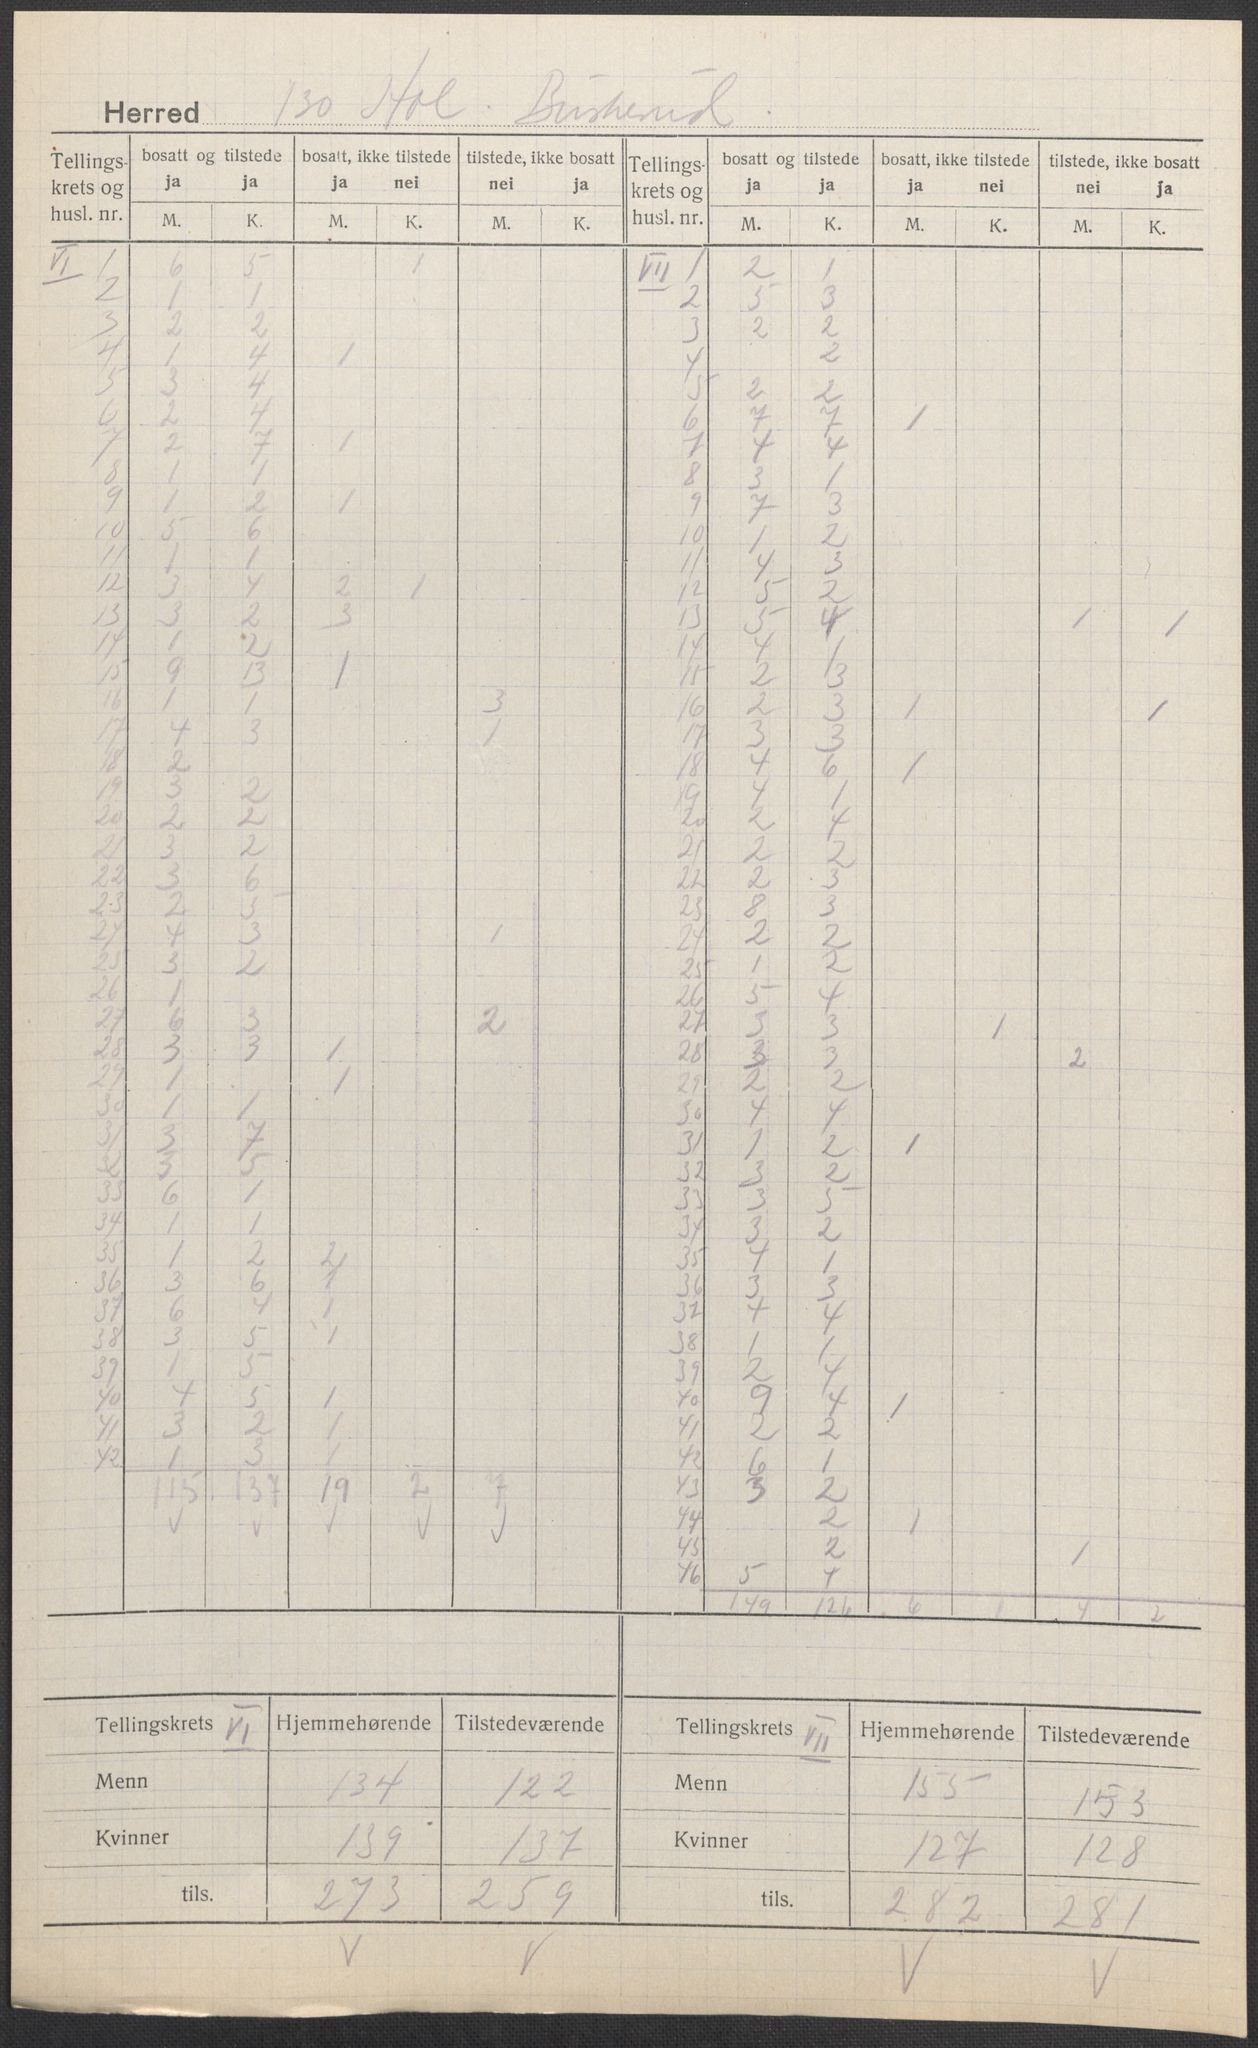 Herred 130 Hol. Buskerud.
Tellings- krets og husl. nr. | bosatt og tilstede ja ja | bosatt, ikke tilstede ja nei | tilstede, ikke bosatt nei ja | Tellings- krets og husl. nr. | bosatt og tilstede ja ja | bosatt, ikke tilstede ja nei | tilstede, ikke bosatt nei ja
M. K. M. K. M. K. M. K. M. K. M. K.
VI 1 | 6 | 5 | | 1 | | | VII 1 | 2 | 1 | | | |
2 | 1 | 1 | | | | | 2 | 5 | 3 | | | |
3 | 2 | 2 | | | | | 3 | 2 | 2 | | | |
4 | 1 | 4 | 1 | | | | 4 | | 2 | | | |
5 | 3 | 4 | | | | | 5 | 2 | 2 | | | |
6 | 2 | 4 | | | | | 6 | 7 | 7 | 1 | | |
7 | 2 | 7 | 1 | | | | 7 | 4 | 4 | | | |
8 | 1 | 1 | | | | | 8 | 3 | 1 | | | |
9 | 1 | 2 | 1 | | | | 9 | 7 | 3 | | | |
10 | 5 | 6 | | | | | 10 | 1 | 2 | | | |
11 | 1 | 1 | | | | | 11 | 4 | 3 | | | |
12 | 3 | 4 | 2 | 1 | | | 12 | 5 | 2 | | | |
13 | 3 | 2 | 3 | | | | 13 | 5 | 4 | | | 1 | 1
14 | 1 | 2 | | | | | 14 | 4 | 1 | | | |
15 | 9 | 13 | 1 | | | | 15 | 2 | 3 | | | |
16 | 1 | 1 | | | 3 | | 16 | 2 | 3 | 1 | | | 1
17 | 4 | 3 | | | 1 | | 17 | 3 | 3 | | | |
18 | 2 | | | | | | 18 | 4 | 6 | 1 | | |
19 | 3 | 2 | | | | | 19 | 4 | 1 | | | |
20 | 2 | 2 | | | | | 20 | 2 | 4 | | | |
21 | 3 | 2 | | | | | 21 | 2 | 2 | | | |
22 | 3 | 6 | | | | | 22 | 2 | 3 | | | |
23 | 2 | 5 | | | | | 23 | 8 | 3 | | | |
24 | 4 | 3 | | | 1 | | 24 | 2 | 2 | | | |
25 | 3 | 2 | | | | | 25 | 1 | 2 | | | |
26 | 1 | | | | | | 26 | 5 | 4 | | | |
27 | 6 | 3 | | | 2 | | 27 | 3 | 3 | | 1 | |
28 | 3 | 3 | 1 | | | | 28 | 3 | 3 | | | 2 |
29 | 1 | | 1 | | | | 29 | 2 | 2 | | | |
30 | 1 | 1 | | | | | 30 | 4 | 4 | | | |
31 | 3 | 7 | | | | | 31 | 1 | 2 | 1 | | |
32 | 3 | 5 | | | | | 32 | 3 | 2 | | | |
33 | 6 | 1 | | | | | 33 | 3 | 5 | | | |
34 | 1 | 1 | | | | | 34 | 3 | 2 | | | |
35 | 1 | 2 | 2 | | | | 35 | 4 | 1 | | | |
36 | 3 | 6 | | | | | 36 | 3 | 3 | | | |
37 | 6 | 4 | 1 | | | | 37 | 4 | 4 | | | |
38 | 3 | 5 | 1 | | | | 38 | 1 | 1 | | | |
39 | 1 | 5 | | | | | 39 | 2 | 4 | | | |
40 | 4 | 5 | 1 | | | | 40 | 9 | 4 | 1 | | |
41 | 3 | 2 | 1 | | | | 41 | 2 | 2 | | | |
42 | 1 | 3 | 1 | | | | 42 | 6 | 1 | | | |
115 | 137 | 19 | 2 | 7 | | 43 | 3 | 2 | | | |
44 | | 2 | 1 | | |
45 | | 2 | | | 1 |
46 | 5 | 4 | | | |
149 | 126 | 6 | 1 | 4 | 2
Tellingskrets VI | Hjemmehørende | Tilstedeværende | Tellingskrets VII | Hjemmehørende | Tilstedeværende
Menn | 134 | 122 | Menn | 155 | 153
Kvinner | 139 | 137 | Kvinner | 127 | 128
tils. | 273 | 259 | tils. | 282 | 281